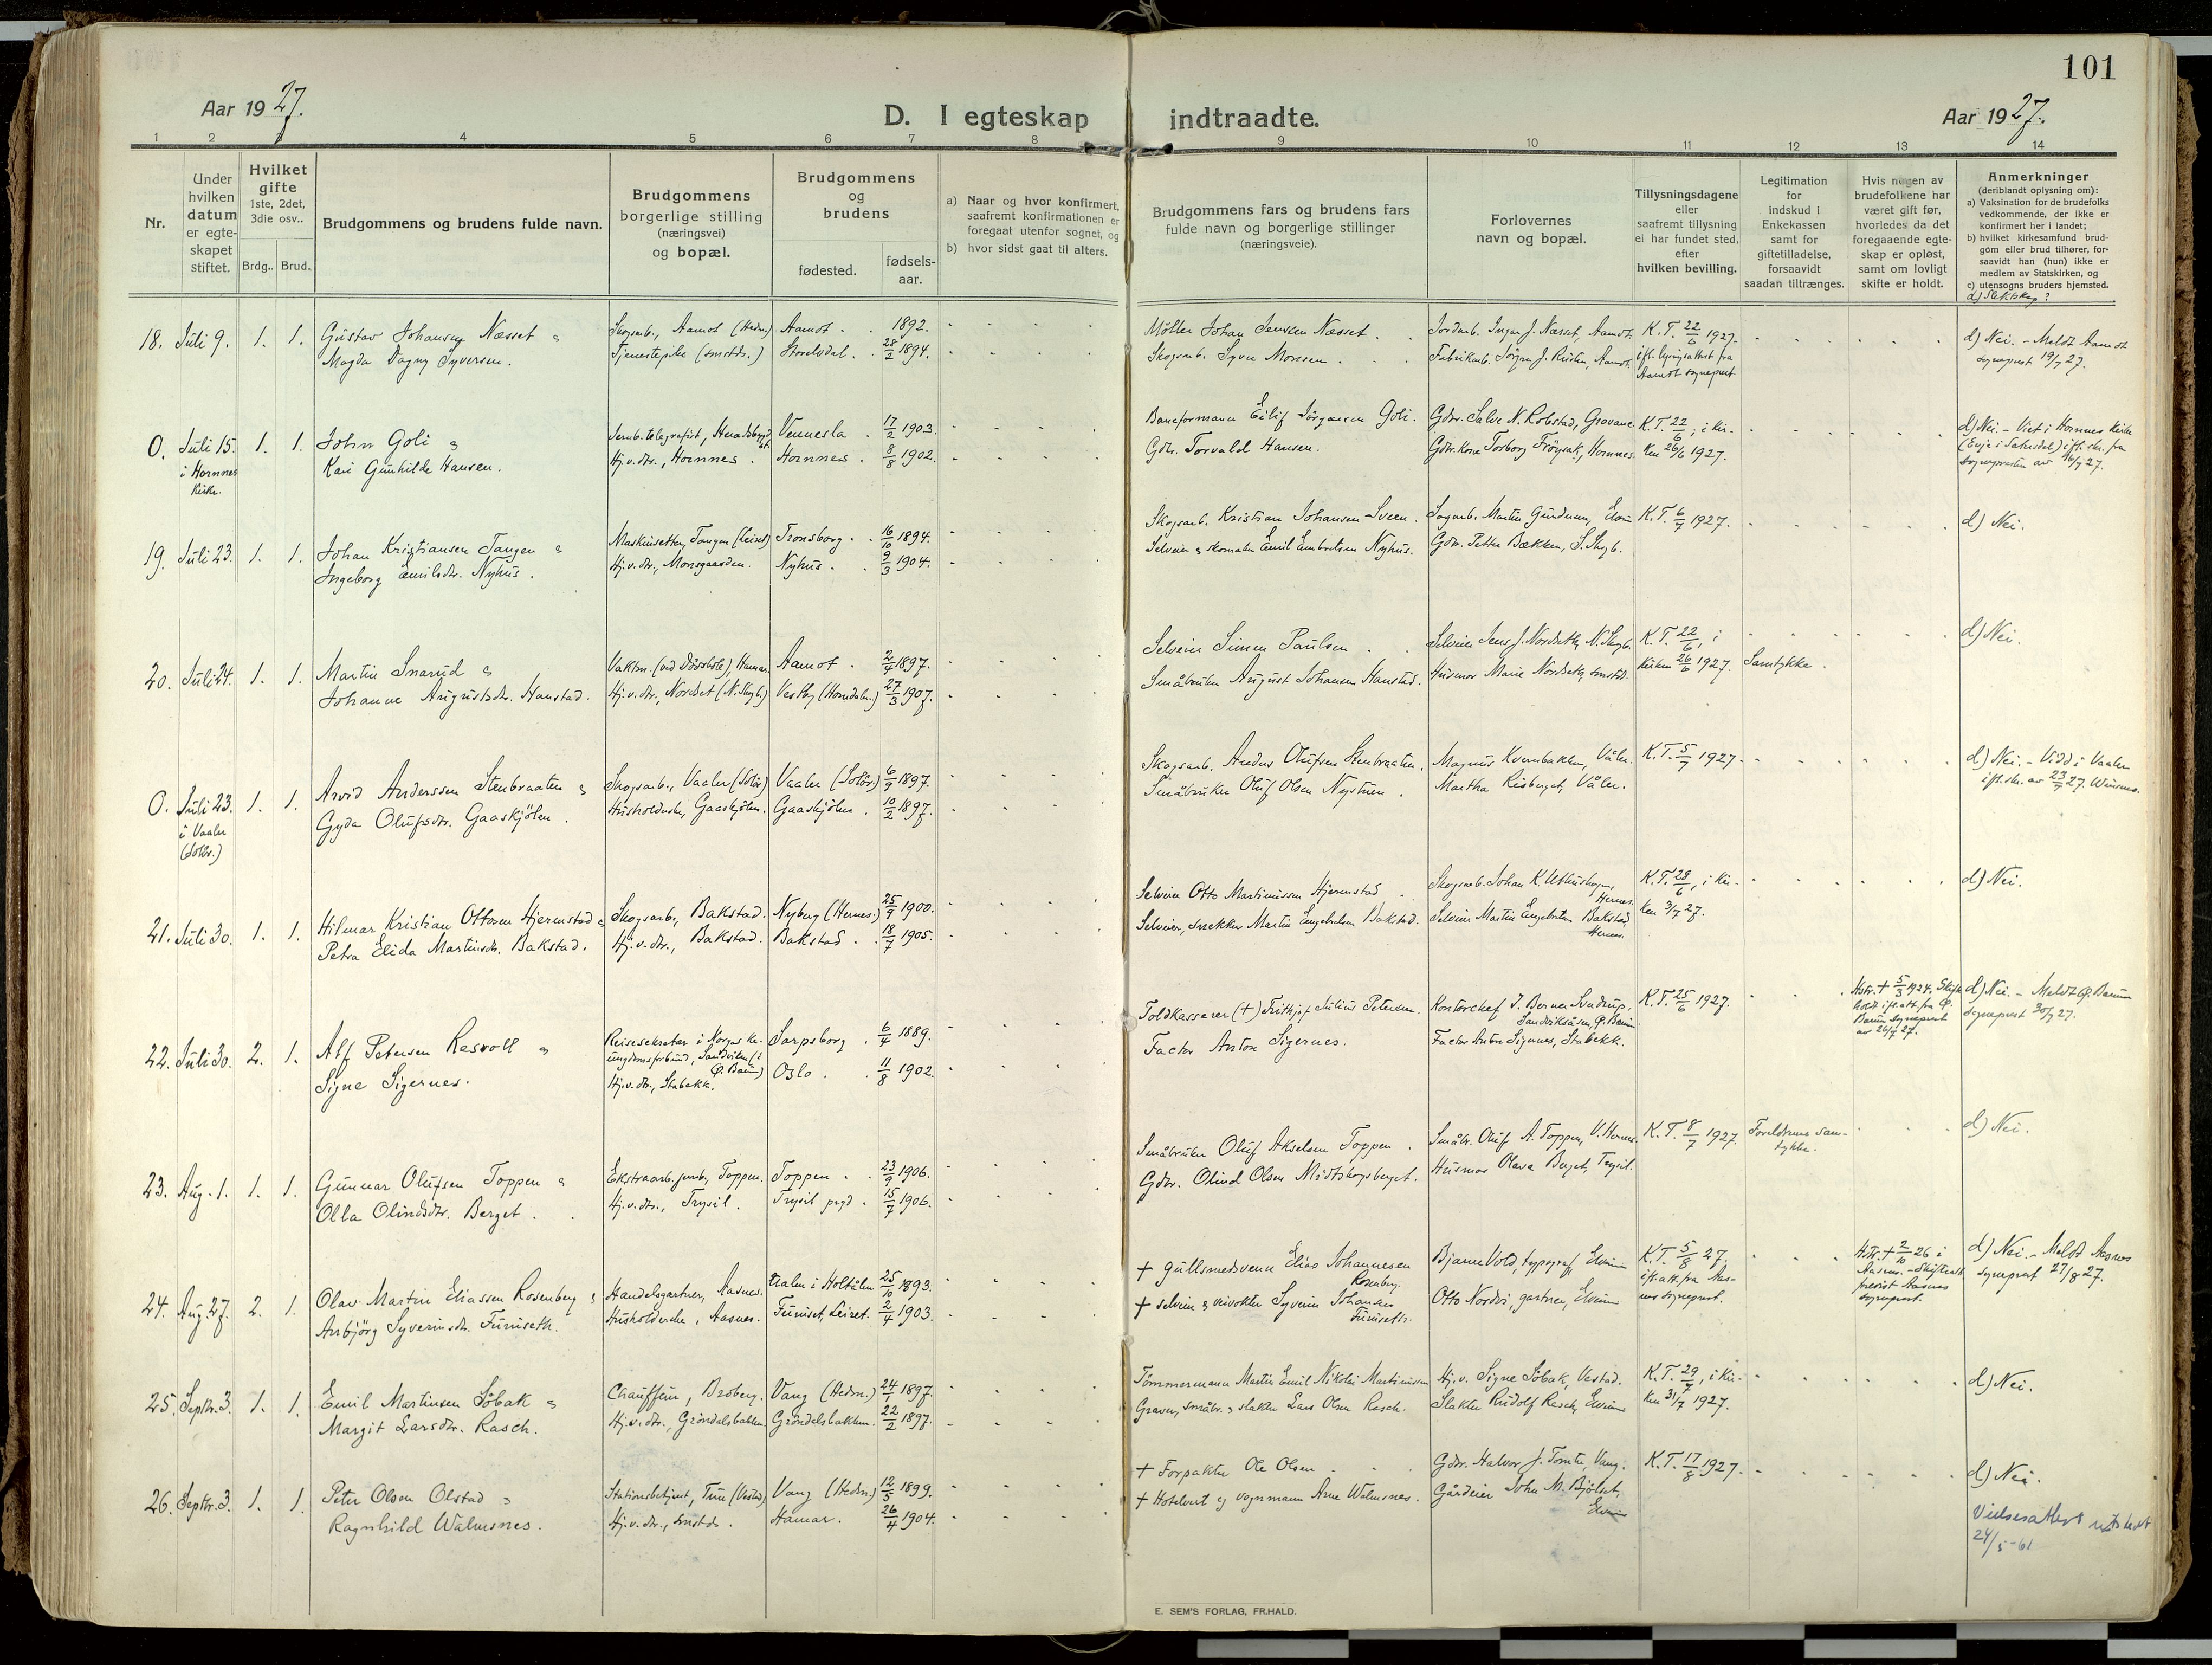 101
Aar 1927.
D. I egteskap indtraadte.
Aar 1927.
1 2 3 4 5 6 7 8 9 10 11 12 13 14
Nr.
Under hvilken datum er egte-skapet stiftet.
Hvilket gifte 1ste, 2det, 3die osv..
Brdg.. Brud.
Brudgommens og brudens fulde navn.
Brudgommens borgerlige stilling (næringsvei) og bopæl.
Brudgommens og brudens
fødested.
fødsels-aar.
a) Naar og hvor konfirmert, saafremt konfirmationen er foregaat utenfor sognet, og
b) hvor sidst gaat til alters.
Brudgommens fars og brudens fars fulde navn og borgerlige stillinger (næringsveie).
Forlovernes navn og bopæl.
Tillysningsdagene eller saafremt tillysning ei har fundet sted, efter hvilken bevilling.
Legitimation for indskud i Enkekassen samt for giftetilladelse, forsaavidt saadan tiltrænges.
Hvis nogen av brudefolkene har været gift før, hvorledes da det foregaaende egte-skap er opløst, samt om lovligt skifte er holdt.
Anmerkninger
(deriblandt oplysning om):
a) Vaksination for de brudefolks vedkommende, der ikke er konfirmert her i landet;
b) hvilket kirkesamfund brud-gom eller brud tilhører, for-saavidt han (hun) ikke er medlem av Statskirken, og
c) utensogns bruders hjemsted.
d) Slektskap?
18. Juli 9. 1. 1. Gustav Johansen Næsset &
Magda Dagny Syversen.
Skogsarb., Aamot (Hedm.) Aamot. 1892.
Tjenestepike (smstds.) Storelvdal. 28/2 1894.
Møller Johan Jensen Næsset.
Skogsarb. Syver Monssen.
Jordarb. Ingar J. Næsset, Aamot.
Fabrikarb. Jörgen J. Kristen, Aamot.
K. T. 22/6 1927.
ifl. lysingsattest fra
Aamot sogneprest.
d) Nei. - Meldt Aamot
sogneprest 19/7 27.
0. Juli 15. i Hornnes Kirke. 1. 1. John Goli &
Kari Gunhilde Hansen.
Jernb. telegrafist, Vennesla. 17/2 1903.
Hj.v. dtr., Hornnes. Hornnes. 8/8 1902.
Baneformann Eilif Jörgensen Goli.
Gdbr. Torvald Hansen.
Gdbr. Salve N. Robstad, Grovane
Gdbr. Kone Torborg Fröysak, Hornnes.
K. T. 22/6, i kir-
ken 26/6 1927.
d) Nei. - Viet i Hornnes Kirke
(Evje i Setesdal) ifl. skr. fra
sognepresten av 16/7 27.
19. Juli 23. 1. 1. Johan Kristiansen Tangen &
Ingeborg Emilsdtr. Nyhus.
Maskinsetter, Tangen (Leiret) Tronsborg. 16/10 1894.
Hj.v. dtr., Monsgaarden. Nyhus. 9/3 1904.
Skogsarb. Kristian Johansen Sveen.
Selveier & skomaker Emil Embretsen Nyhus.
Sagarb. Martin Gundersen, Elverum
Gdbr. Petter Bækken, S. Skogb.
K. T. 6/7 1927.
d) Nei.
20. Juli 24. 1. 1. Martin Snarud &
Johanne Augustsdtr. Hanstad.
Vaktm. (ved Dövskole), Hamar. Aamot. 2/4 1897.
Hj.v. dtr., Nordset (N. Skogb.) Vestby (Horndalen.) 27/3 1907.
Selveier Simen Paulsen.
Småbruker August Johansen Hanstad.
Selveier Jens J. Nordseth, N. Skogb.
Husmor Marie Nordseth, smstds.
K. T. 22/6, i
kirken 26/6 1927.
Samtykke.
d) Nei.
0. Juli 23. i Vaaler (Solör.) 1. 1. Arvid Anderssen Stenbraaten &
Gyda Olufsdtr. Gaaskjölen.
Skogsarb., Vaaler (Solör) Vaaler (Solör.) 6/9 1897.
Husholderske, Gaaskjölen. Gaaskjölen. 10/2 1897.
Skogsarb. Anders Olufsen Stenbraaten.
Småbruker Oluf Olsen Nystuen.
Magnus Kvernbakken, Våler.
Martha Risberget, Våler.
K. T. 5/7 1927.
d) Nei. - Vidd i Vaaler
ifl. skr. av 23/7 27.
21. Juli 30. 1. 1. Hilmar Kristian Ottosen Hjermstad &
Petra Elida Martinsdtr. Bakstad.
Skogsarb., Bakstad. Nyberg (Hernes.) 25/9 1900.
Hj.v. dtr., Bakstad. Bakstad. 18/7 1905.
Selveier Otto Martinussen Hjermstad.
Selveier, snekker Martin Engebretsen Bakstad.
Skogsarb. Johan K. Utkuskogen, Hernes.
Selveier Martin Engebretsen Bakstad, Hernes.
K. T. 28/6, i kir-
ken 3/7 27.
d) Nei.
22. Juli 30. 2. 1. Alf Petersen Resvoll &
Signe Sigernes.
Reisesekretær i Norges kr.
ungdomsforbund, Sandviken (i Ø. Bærum) Sarpsborg. 6/4 1889.
Hj.v. dtr., Stabekk. Oslo. 11/8 1902.
Toldkasserer (+) Frithjof Julius Petersen.
Factor Anton Sigernes.
Kontorchef J. Berner Sundrup,
Sandviksåsen, Ø. Bærum
Factor Anton Sigernes, Stabekk.
K. T. 25/6 1927.
Hstr. + 5/3 1924. Skifte
holdt ifl. att. fra Ø.
Bærum sogneprest
av 26/7 27.
d) Nei. - Meldt Ø. Bærum
sogneprest 30/7 27.
23. Aug. 1. 1. 1. Gunnar Olufsen Toppen &
Olla Olindsdtr. Berget.
Ekstraarb. jernb., Toppen. Toppen. 23/9 1906.
Hj.v. dtr., Trysil. Trysil prgd. 15/7 1906.
Småbruker Oluf Akselsen Toppen.
Gdbr. Olind Olsen Midtskogsberget.
Småbr. Oluf A. Toppen, V. Hernes.
Husmor Olava Berget, Trysil.
K. T. 8/7 1927
Foreldrenes sam-
tykke.
d) Nei.
24. Aug. 27. 2. 1. Olav Martin Eliassen Rosenberg &
Anbjörg Syverinsdtr. Furuseth.
Handelsgartner, Aasnes. i Holtålen 25/10 1893.
Husholderske, Aasnes. Furuset, Leiret. 2/4 1903.
+ gullsmedsvenn Elias Johannesen Rosenberg.
+ selveier & veivokter Syverin Johansen Furuseth.
Bjarne Vold, typograf, Elverum
Otto Nordvi, gartner, Elverum
K. T. 5/8 27,
ifl. att. fra Aas-
nes sogneprest.
Hstr. + 2/10 26 i
Aasnes. - Skifteatt.
forevist Aasnes
sogneprest.
d) Nei. - Meldt Aasnes
sogneprest 27/8 27.
25. Septbr. 3. 1. 1. Emil Martinsen Söbak &
Margit Larsdtr. Rasch.
Chauffeur, Broberg. Vang (Hedm.) 24/1 1897.
Hj.v. dtr., Gröndalsbakken Gröndalsbakken. 22/2 1897.
Tömmermann Martin Emil Nikolai Martinussen
Graver, småbr. & slakter Lars Olsen Rasch.
Hj.v. Signe Söbak, Vestad.
Slakter Rudolf Rasch, Elverum
K. T. 29/7, i kir-
ken 31/7 1927.
d) Nei.
26. Septbr. 3. 1. 1. Peter Olsen Olstad &
Ragnhild Walmsnes.
Stationsbetjent, Tun (Vestad) Vang (Hedm.) 12/5 1899.
Hj.v. dtr., smstds. Hamar. 26/4 1904.
+ Forpakter Ole Olsen
+ Hotelvert og vognmann Arne Walmsnes.
Gdbr. Halvor J. Tomter, Vang.
Gårdeier John M. Bjölset, Elverum
K. T. 17/8 1927.
d) Nei.
Vielsesattest utstedt
24/5-61
E. SEM'S FORLAG, FR.HALD.